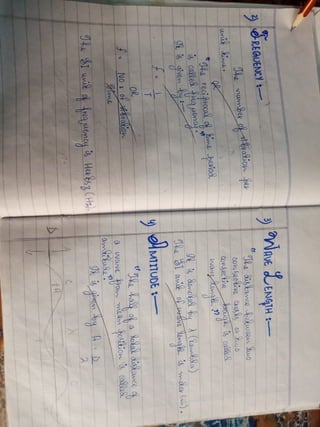 2) FREQUENCY:—
The number of vibration per
unit time.
OR
"The reciprocal of time period
is called frequency."
It is given by:—
f = 1/T
OR
f = No: of vibration
time
The SI unit of frequency is Hertz (Hz)
3) WAVE LENGTH:—
"The distance between two
consective crests or two
consective trough is called
wavelength."
It is denoted by λ (lambda)
The SI unit of wave length is meter (m).
4) AMTITUDE:—
"The half of a total distance of
a wave from mean position is called
It is given by A = D
2
D
A
C